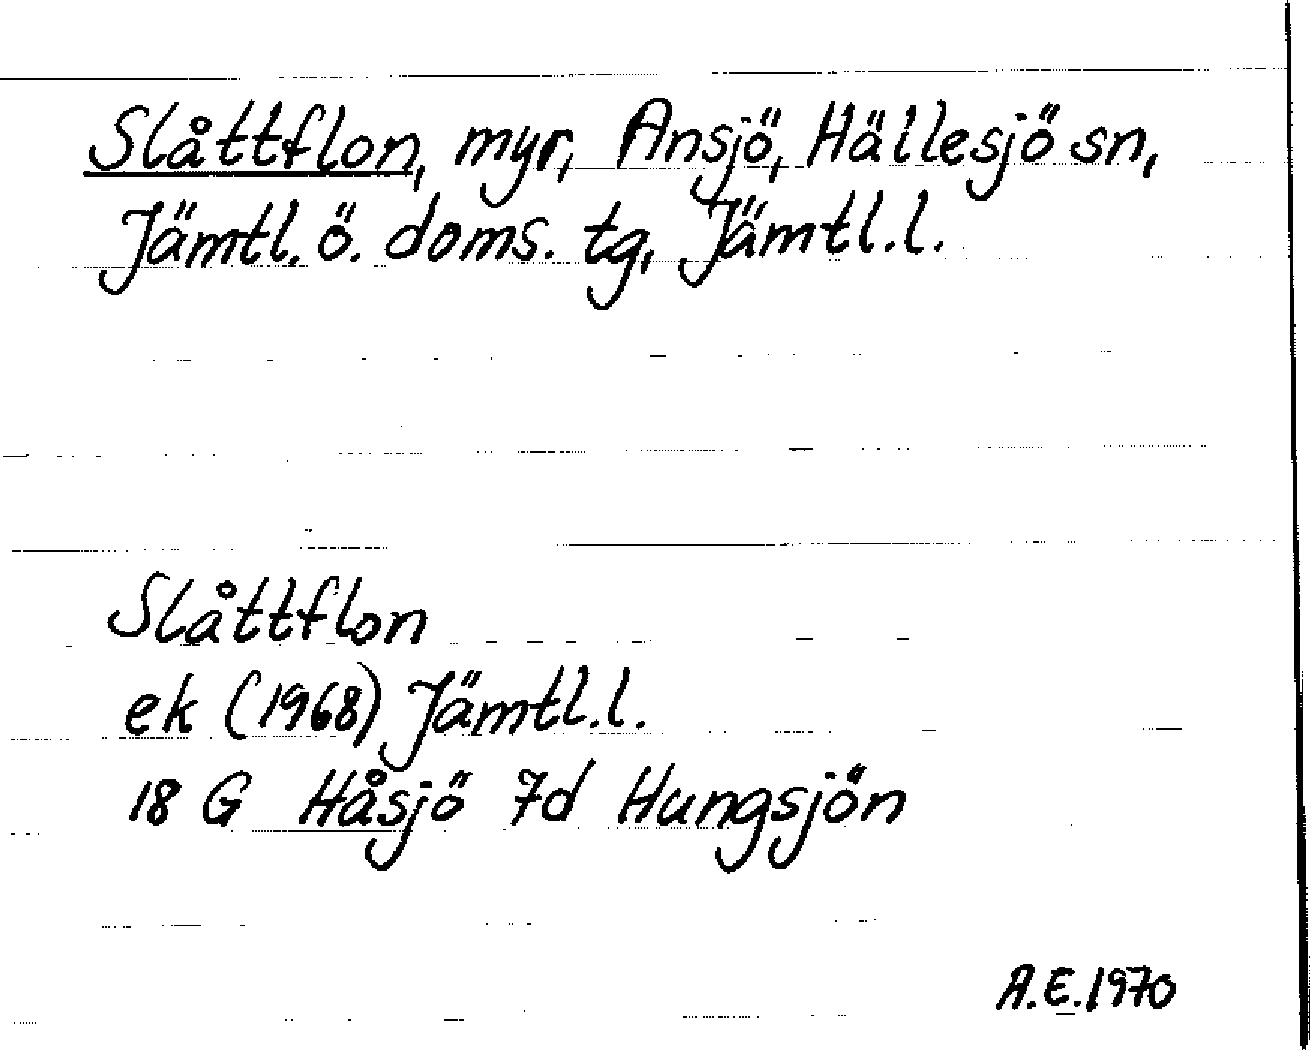 Slåttflon, myr, Ansjö, Hällesjö sn,
Jämtl. ö. doms. tg, Jämtl.l.
Slåttflon
ek (1968) Jämtl.l.
18 G Håsjö 7d Hungsjön
A.E.1970